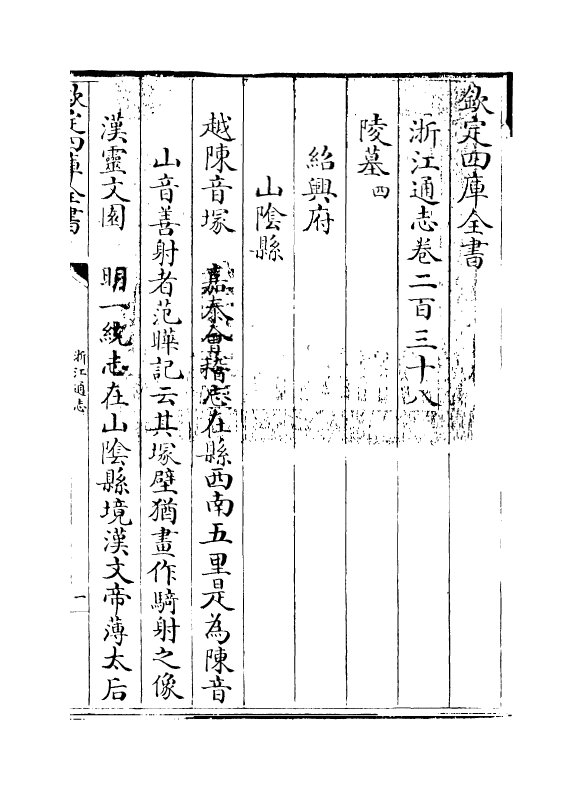 欽定四庫全書
浙江通志卷二百三十八
陵墓四
紹興府
山陰縣
越陳音塚 嘉泰會稽志在縣西南五里是為陳音
山音善射者范曄記云其塚壁猶畫作騎射之像
漢靈文園 明一統志在山陰縣境漢文帝薄太后
欽定四庫全書
浙江通志
一